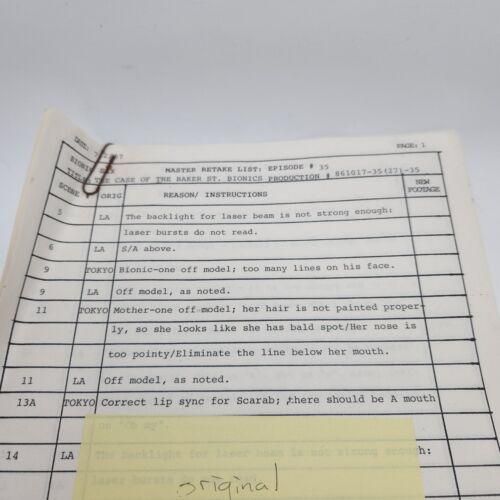 DATE: 7/2/87
PAGE: 1
BIONIC SIX
MASTER RETAKE LIST: EPISODE # 35
TITLE: THE CASE OF TNE BAKER ST. BIONICS PRODUCTION # 861017-35(27)-35
SCENE # ORIG. REASON/ INSTRUCTIONS NEW FOOTAGE
5 LA The backlight for laser beam is not strong enough:
laser bursts do not read.
6 LA S/A above.
9 TOKYO Bionic-one off model; too many lines on his face.
9 LA Off model, as noted.
11 TOKYO Mother-one off model; her hair is not painted proper-
ly, so she looks like she has bald spot/Her nose is
too pointy/Eliminate the line below her mouth.
11 LA Off model, as noted.
13A TOKYO Correct lip sync for Scarab; there should be A mouth
on "Oh my".
14 LA The backlight for laser beam is not strong enough:
laser bursts
original